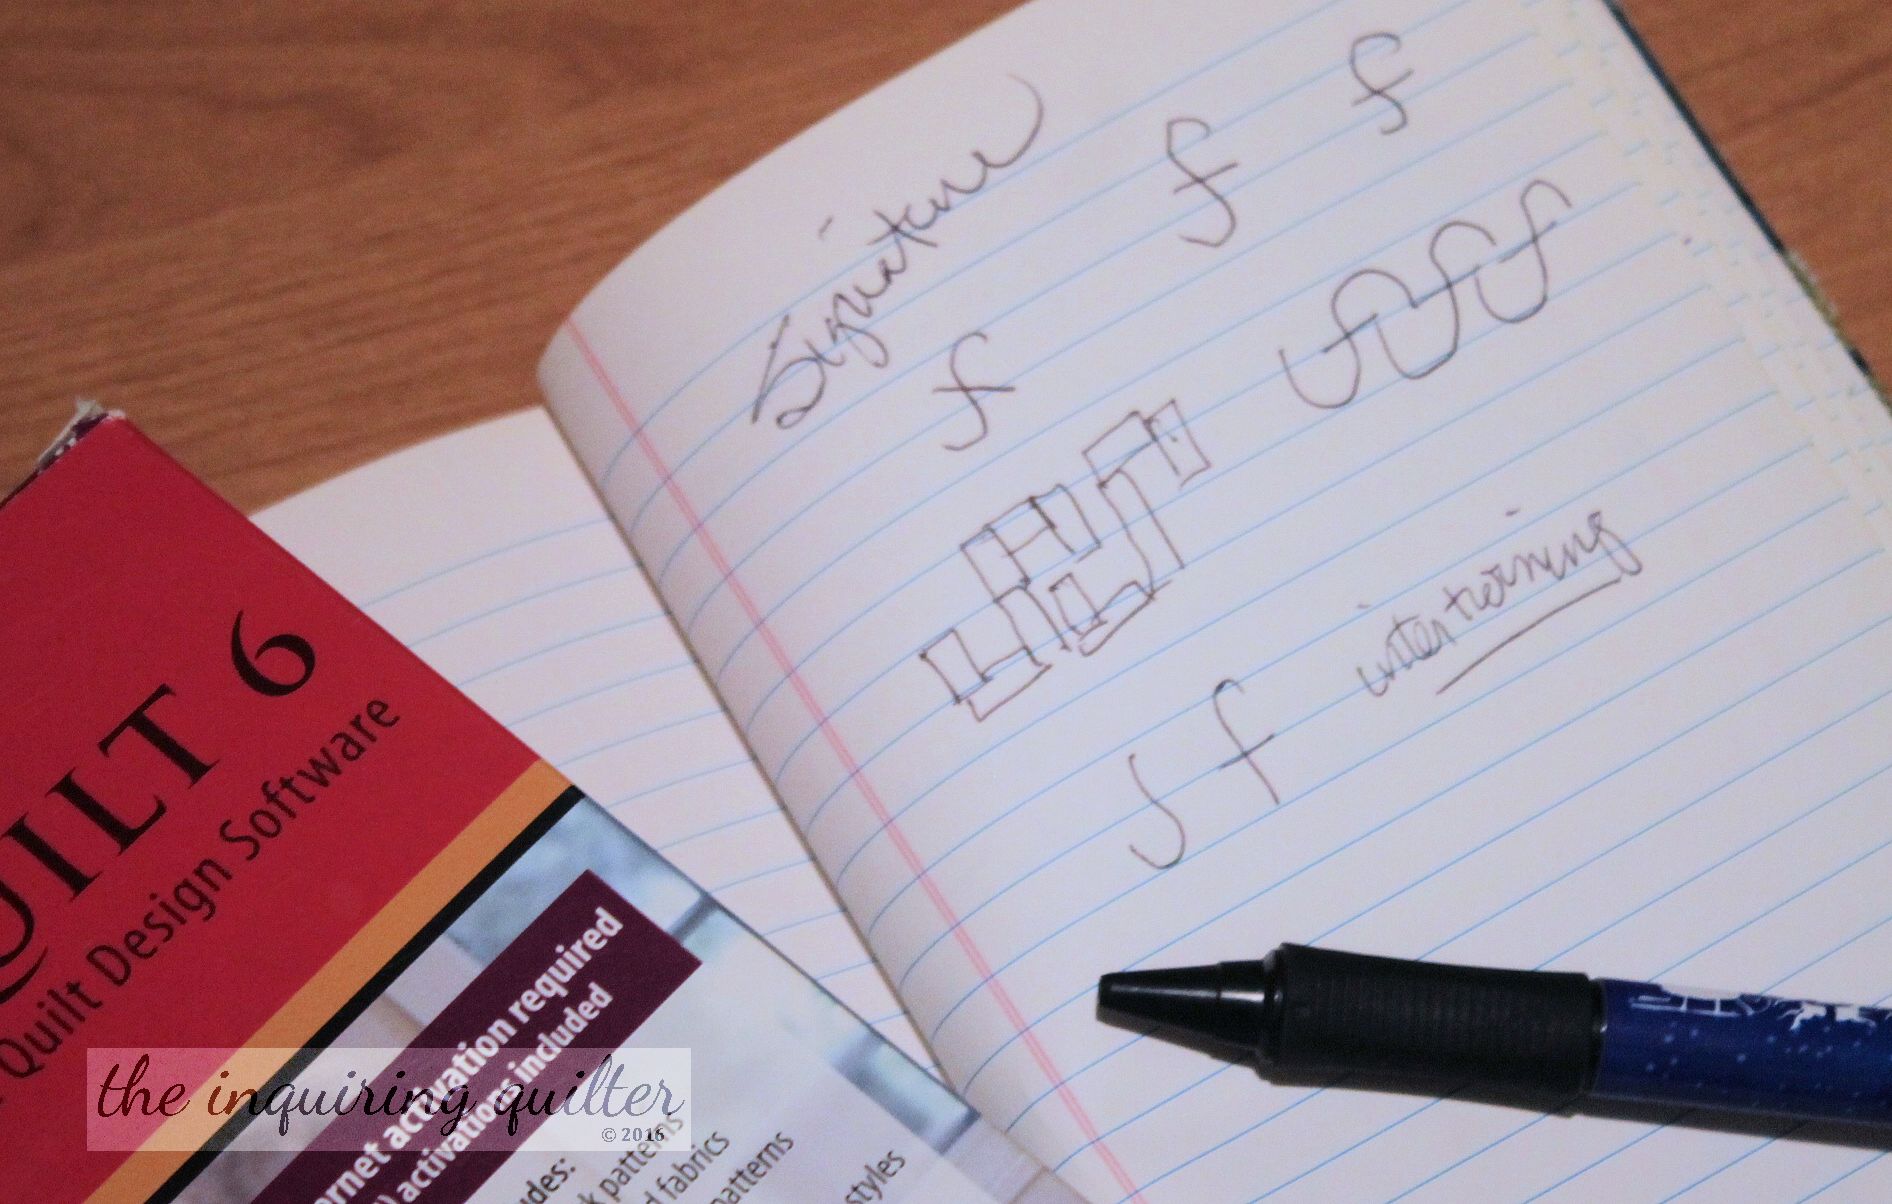 Signature
f
f
f
intertwining
J f
QUILT 6
Quilt Design Software
ernet activation required
) activations included
udes:
k patterns
d fabrics
patterns
styles
the inquiring quilter
© 2016